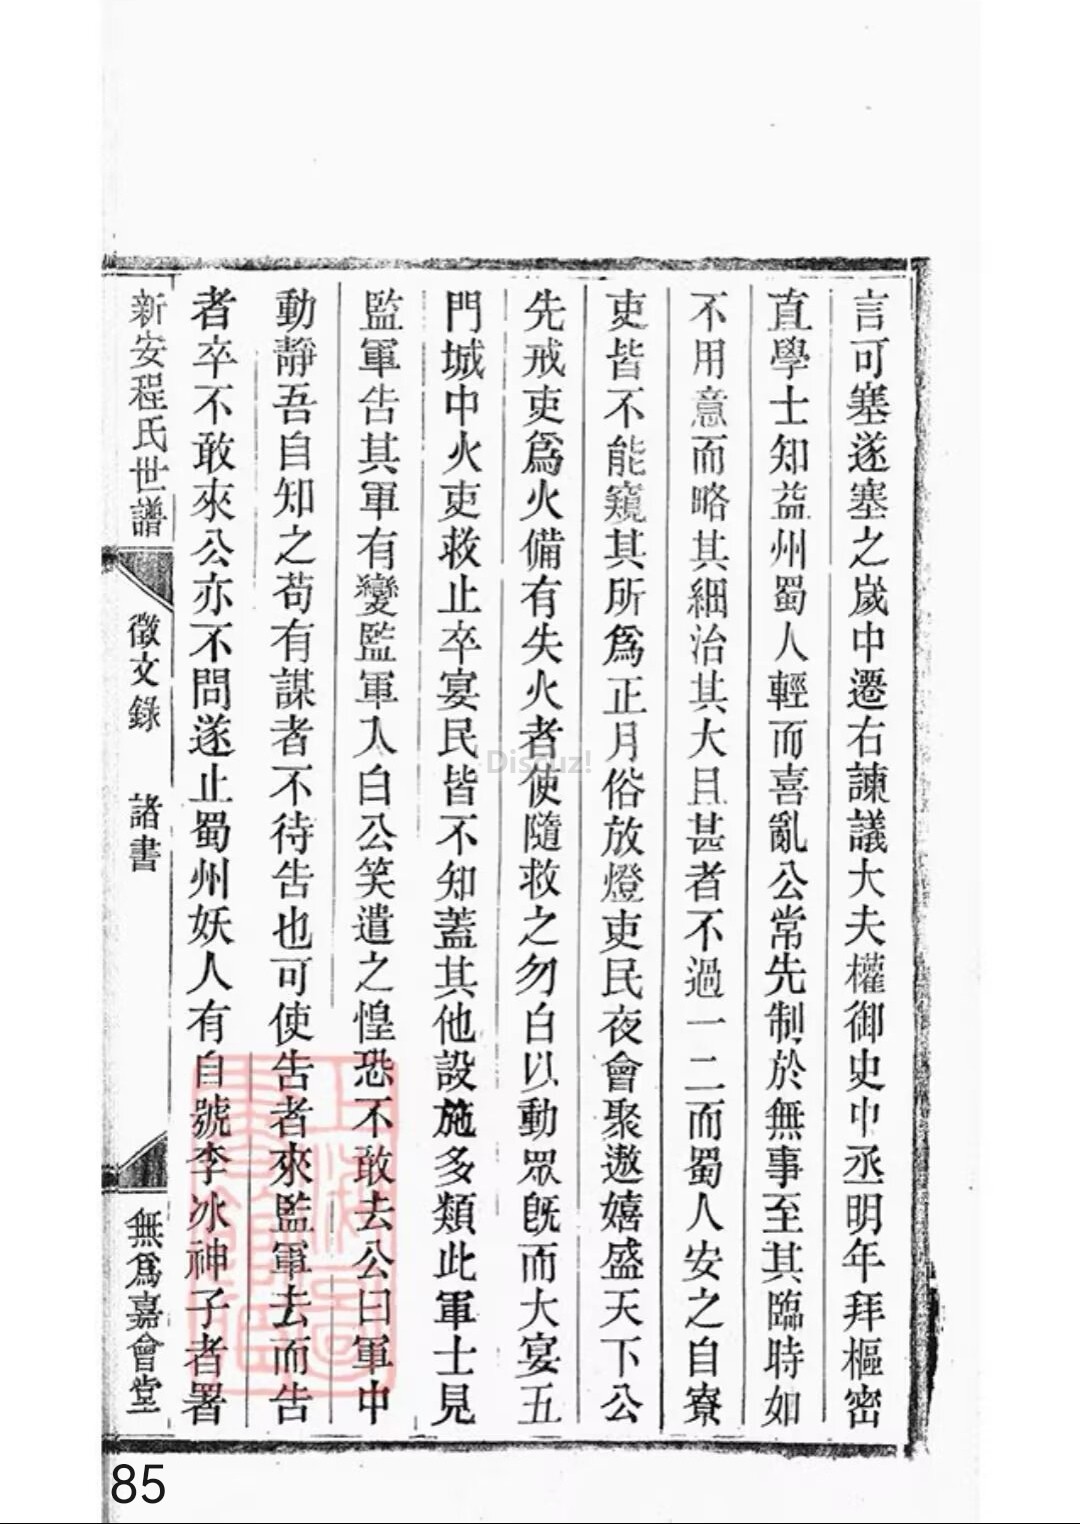 言可塞遂塞之嵗中遷右諫議大夫權御史中丞明年拜樞密
直學士知益州蜀人輕而喜亂公常先制於無事至其臨時如
不用意而略其細治其大且甚者不過一二而蜀人安之自寮
吏皆不能窺其所爲正月俗放燈吏民夜會聚遨嬉盛天下公
先戒吏爲火備有失火者使隨救之勿白以動眾旣而大宴五
門城中火吏救止卒宴民皆不知蓋其他設施多類此軍士見
監軍告其軍有變監軍入白公笑遣之惶恐不敢去公曰軍中
動靜吾自知之苟有謀者不待告也可使告者來監軍去而告
者卒不敢來公亦不問遂止蜀州妖人有自號李冰神子者署
新安程氏世譜 徵文錄 諸書 無爲嘉會堂
Discuz!
85